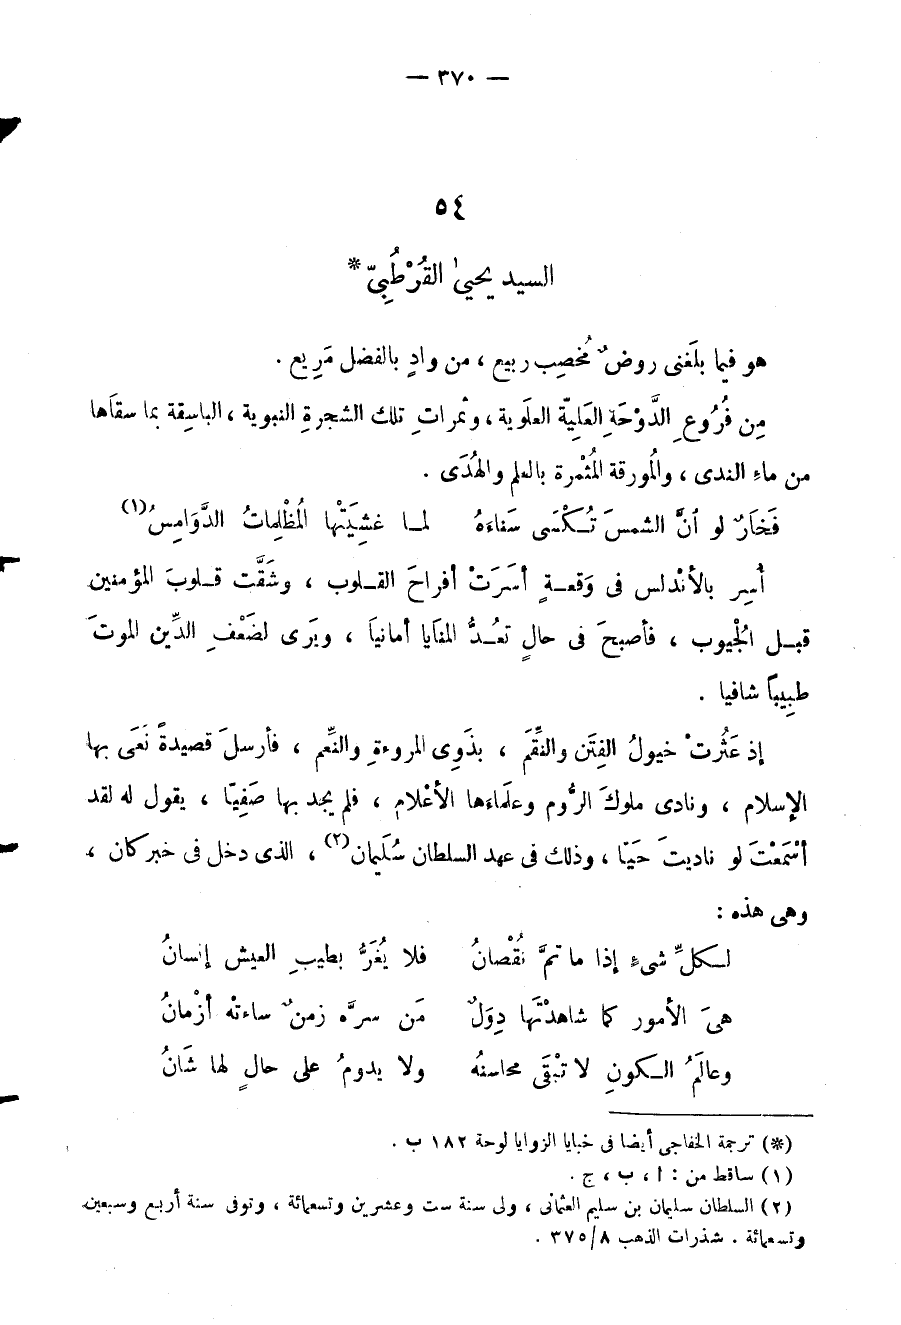 — ٣٧٠ —
٥٤
السيد يحيىٰ القُرْطُبِىّ *
هو فيما بلَغنى روضٌ مُخصِب ربيع ، من وادٍ بالفضل مَرِيع .
مِن فُرُوعِ الدَّوْحَةِ العَلِيّة العلَوية ، وثمراتِ تلك الشجرةِ النبوية ، الباسِقة بما سقَاها
من ماءِ الندى ، والمُورقة المُثْمرة بالعلم والهُدَى .
فَخَارٌ لو أنَّ الشمسَ تُكْسَى سَناءَهُ لما غشِيَتْها المُظْلِماتُ الدَّوَامِسُ(١)
أُسِر بالأنْدلس فى وَقعةٍ أسَرَتْ أفراحَ القلوب ، وشَقَّت قلوبَ المؤمنين
قبل الجُيوب ، فأصبحَ فى حالٍ تعُدُّ المنَايا أمانيَا ، ويَرى لضَعْفِ الدِّين الموتَ
طبِيباً شافيا .
إذ عَثُرتْ خيولُ الفِتَن والنِّقَم ، بذَوِى المروءةِ والنِّعم ، فأرسلَ قصيدةً نَعَى بها
الإسلام ، ونادى ملوكَ الرُّوم وعلَماءَها الأعْلام ، فلم يجد بها صَفِيّا ، يقول له لقد
أسْمَعْتَ لو ناديتَ حَيّا ، وذلك فى عهد السلطان سُلَيمان(٢) ، الذى دخل فى خبر كان ،
وهى هذه :
لكلِّ شىءٍ إذا ما تمَّ نُقْصَانُ فلا يُغَرُّ بطيبِ العيش إنسانُ
هىَ الأمور كما شاهدْتَها دِوَلٌ مَن سرَّه زمنٌ ساءتْه أزْمانُ
وعالَمُ الكونِ لا تبْقَى محاسنُه ولا يدومُ على حالٍ لها شَانُ
(*) ترجمة الخفاجى أيضا فى خبايا الزوايا لوحة ١٨٢ ب .
(١) ساقط من : ا ، ب ، ج .
(٢) السلطان سليمان بن سليم العثمانى ، ولى سنة ست وعشرين وتسعمائة ، وتوفى سنة أربع وسبعين
وتسعمائة . شذرات الذهب ٣٧٥/٨ .